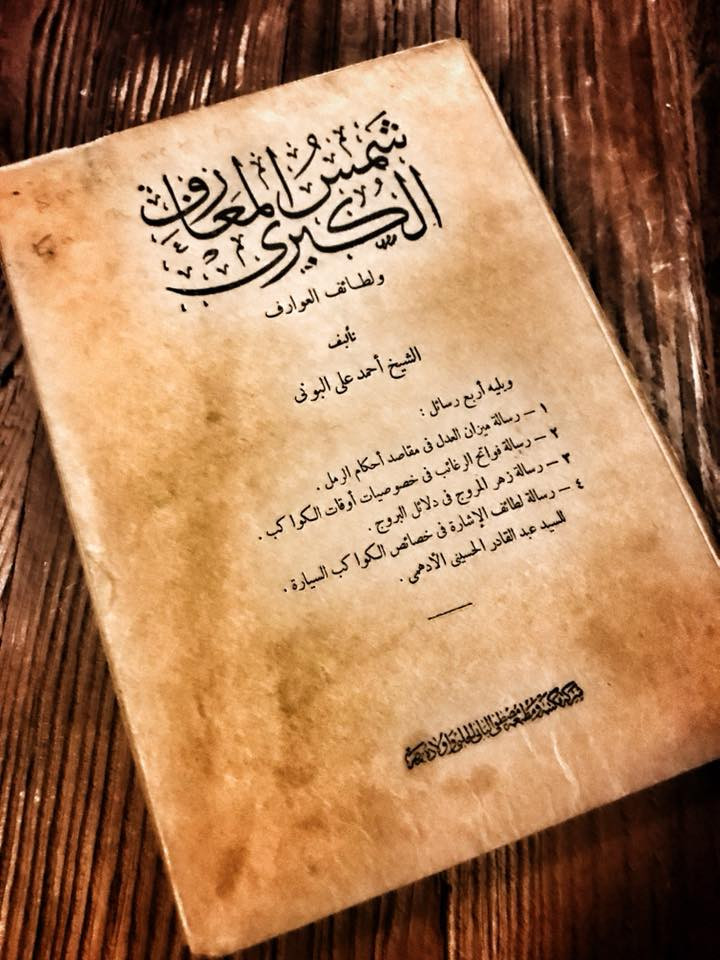 شمس المعارف
الكبرى
ولطائف العوارف
تأليف
الشيخ أحمد على البونى
ويليه أربع رسائل :
١ – رسالة ميزان العدل فى مقاصد أحكام الرمل .
٢ – رسالة فواتح الرغائب فى خصوصيات أوقات الكواكب .
٣ – رسالة زهر المروج فى دلائل البروج .
٤ – رسالة لطائف الإشارة فى خصائص الكواكب السيارة .
للسيد عبد القادر الحسينى الأدهمى .
شركة مكتبة ومطبعة مصطفى البابى الحلبى وأولاده بمصر